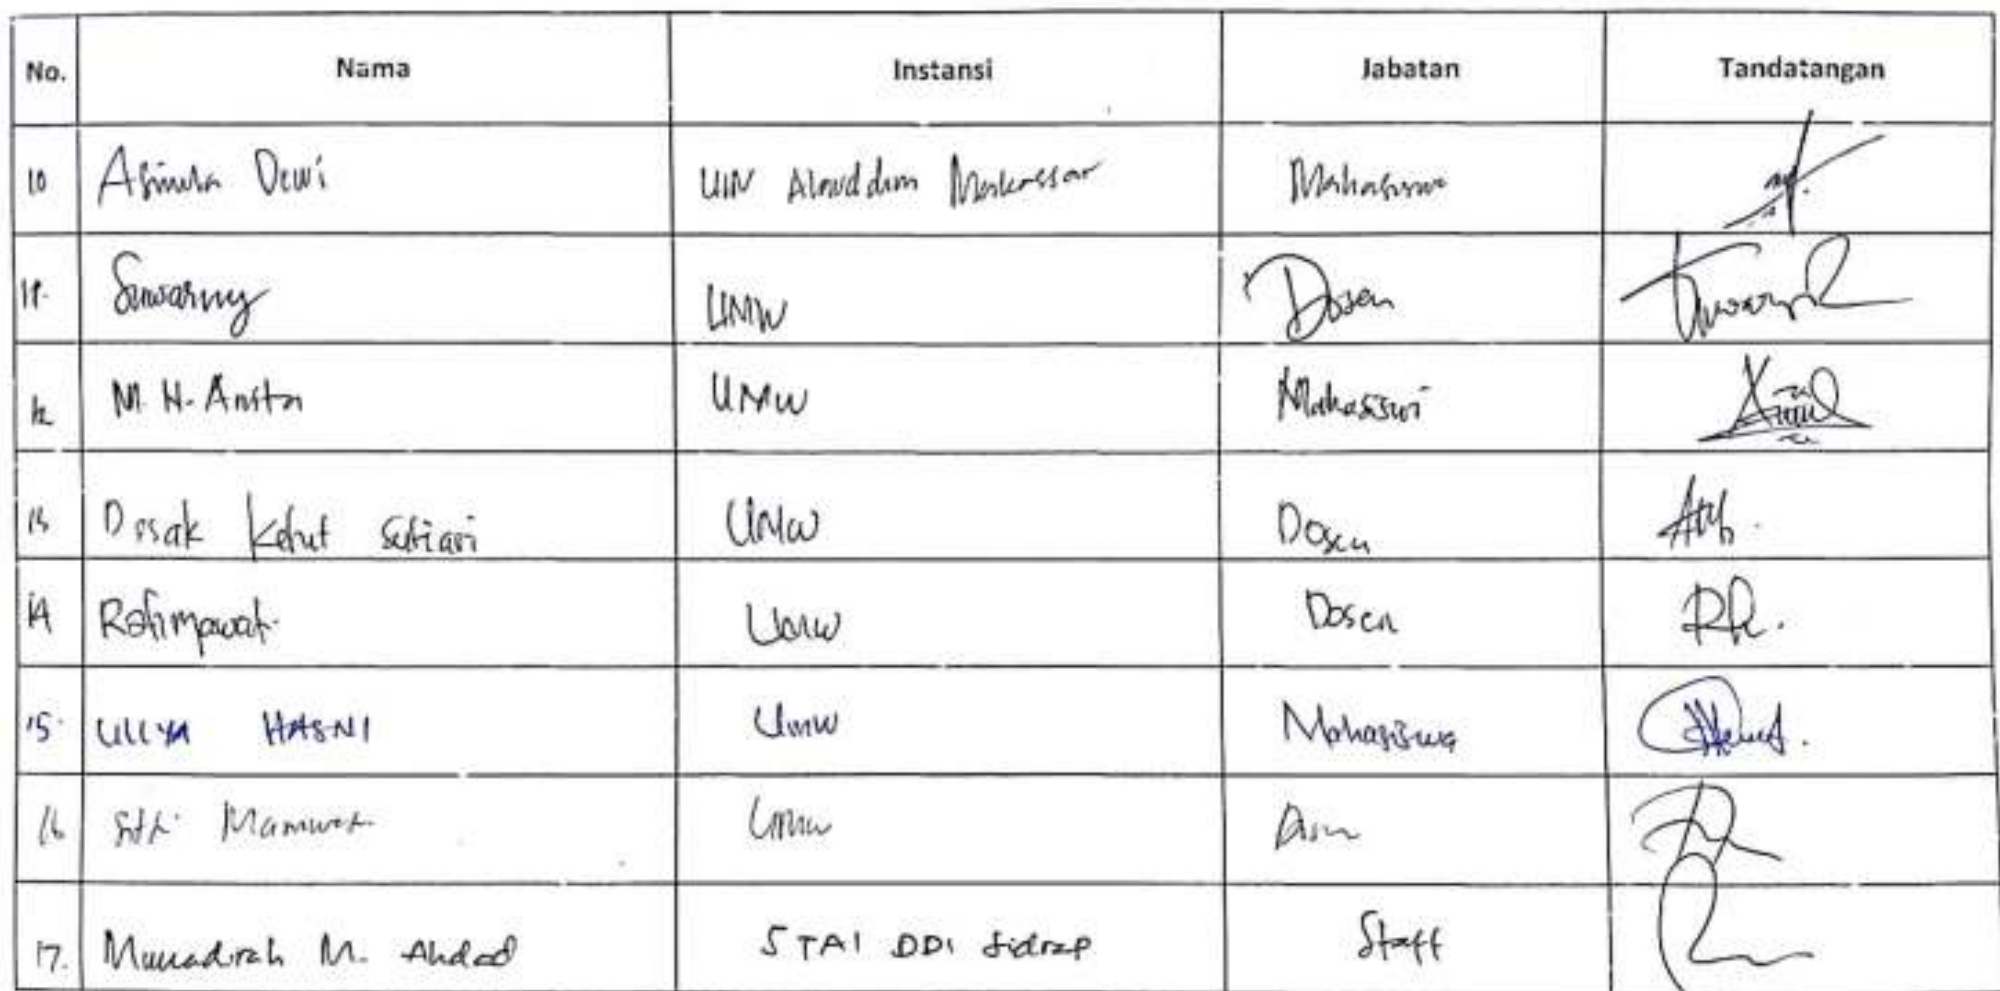 No. Nama Instansi Jabatan Tandatangan
10 Dewi UIN Alauddin Makassar Mahasiswa
11. Suwarny UMW Dosen
12 M. H. UMW Mahasiswi
13 Desak Ketut Sutiari UMW Dosen
14 UMW Dosen
15. ULLYA HASNI UMW Mahasiswa
16 UMW Dosen
17. Munadirah M. Ahdad STAI DDI Sidrap Staff